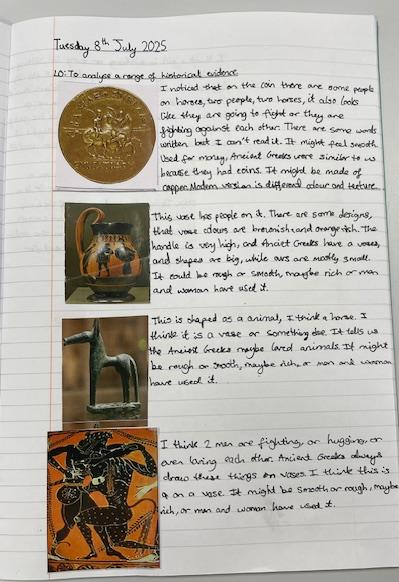 Tuesday 8th July 2025
LO: To analyse a range of historical evidence.
I noticed that on the coin there are some people
on horses, two people, two horses, it also looks
like they are going to fight or they are
fighting against each other. There are some words
written but I can't read it. It might feel smooth
Used for money, Ancient Greeks were similar to us
because they had coins. It might be made of
copper. Modern version is different colour and texture.
This vase has people on it. There are some designs,
that vase colours are brownish and orange ish. The
handle is very high, and Anciet Greeks have a vases,
and shapes are big, while ours are mostly small.
It could be rough or smooth, maybe rich or men
and woman have used it.
This is shaped as a animal, I think a horse. I
think it is a vase or something else. It tells us
the Ancient Greeks maybe loved animals. It might
be rough or smooth, maybe rich, or men and woman
have used it.
I think 2 men are fighting, or hugging, or
even loving each other. Ancient Greeks always
draw these things on vases. I think this is
on a vase. It might be smooth or rough, maybe
rich, or men and woman have used it.